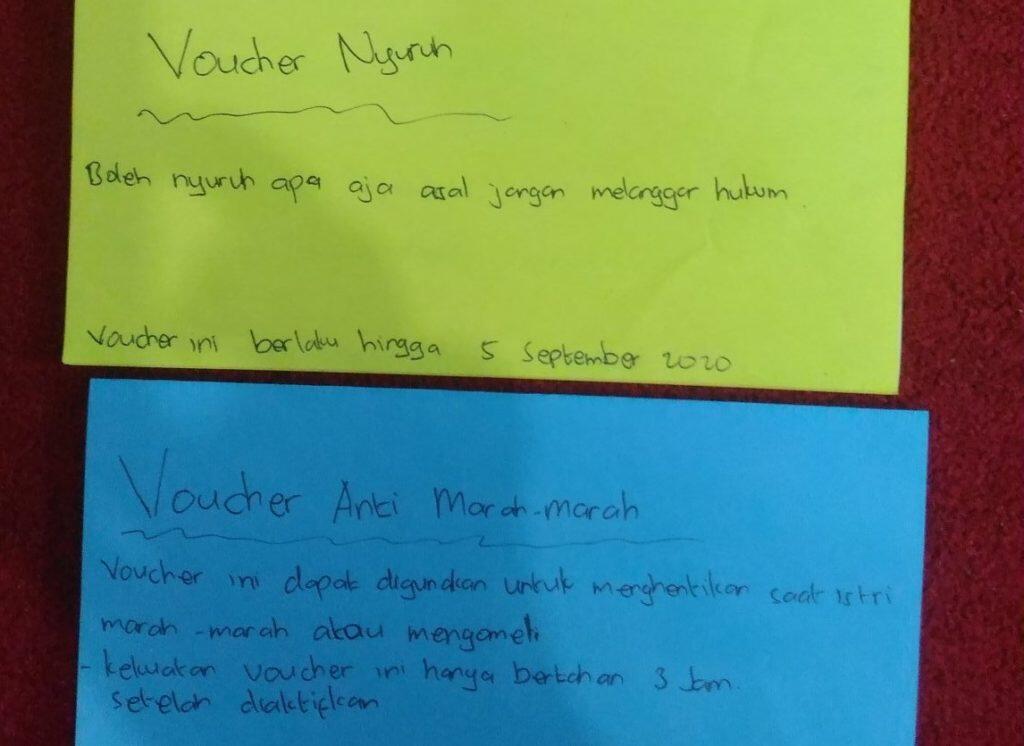 Voucher Nyuruh
Boleh nyuruh apa aja asal jangan melanggar hukum.
Voucher ini berlaku hingga 5 September 2020
Voucher Anti Marah-marah
Voucher ini dapat digunakan untuk menghentikan saat istri
marah-marah atau mengomeli
- kekuatan voucher ini hanya bertahan 3 Jam.
setelah diaktifkan